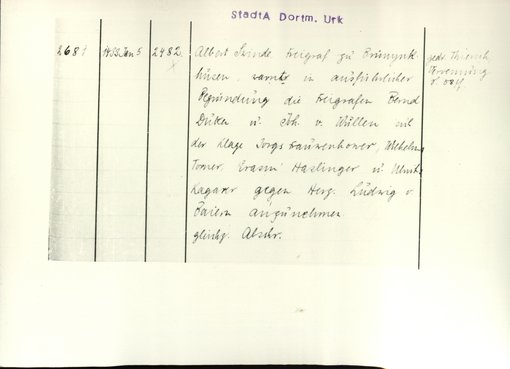 StadtA Dortm. Urk
2681 Jan 5 2482
Albert Swinde Freigraf zu Brünynk-
hüsen, warnte in ausführlicher
Begründung die Freigrafen Bernd
Düker u. Joh. v. Hüllen mit
der Klage Jorgs, Wilhelm
Torner, Erasm Haslinger u. Ulrich
gegen Herz. Ludwig v.
Baiern anzunehmen
gleichz. Abschr.
gedr. Thiersch,
Vervemung